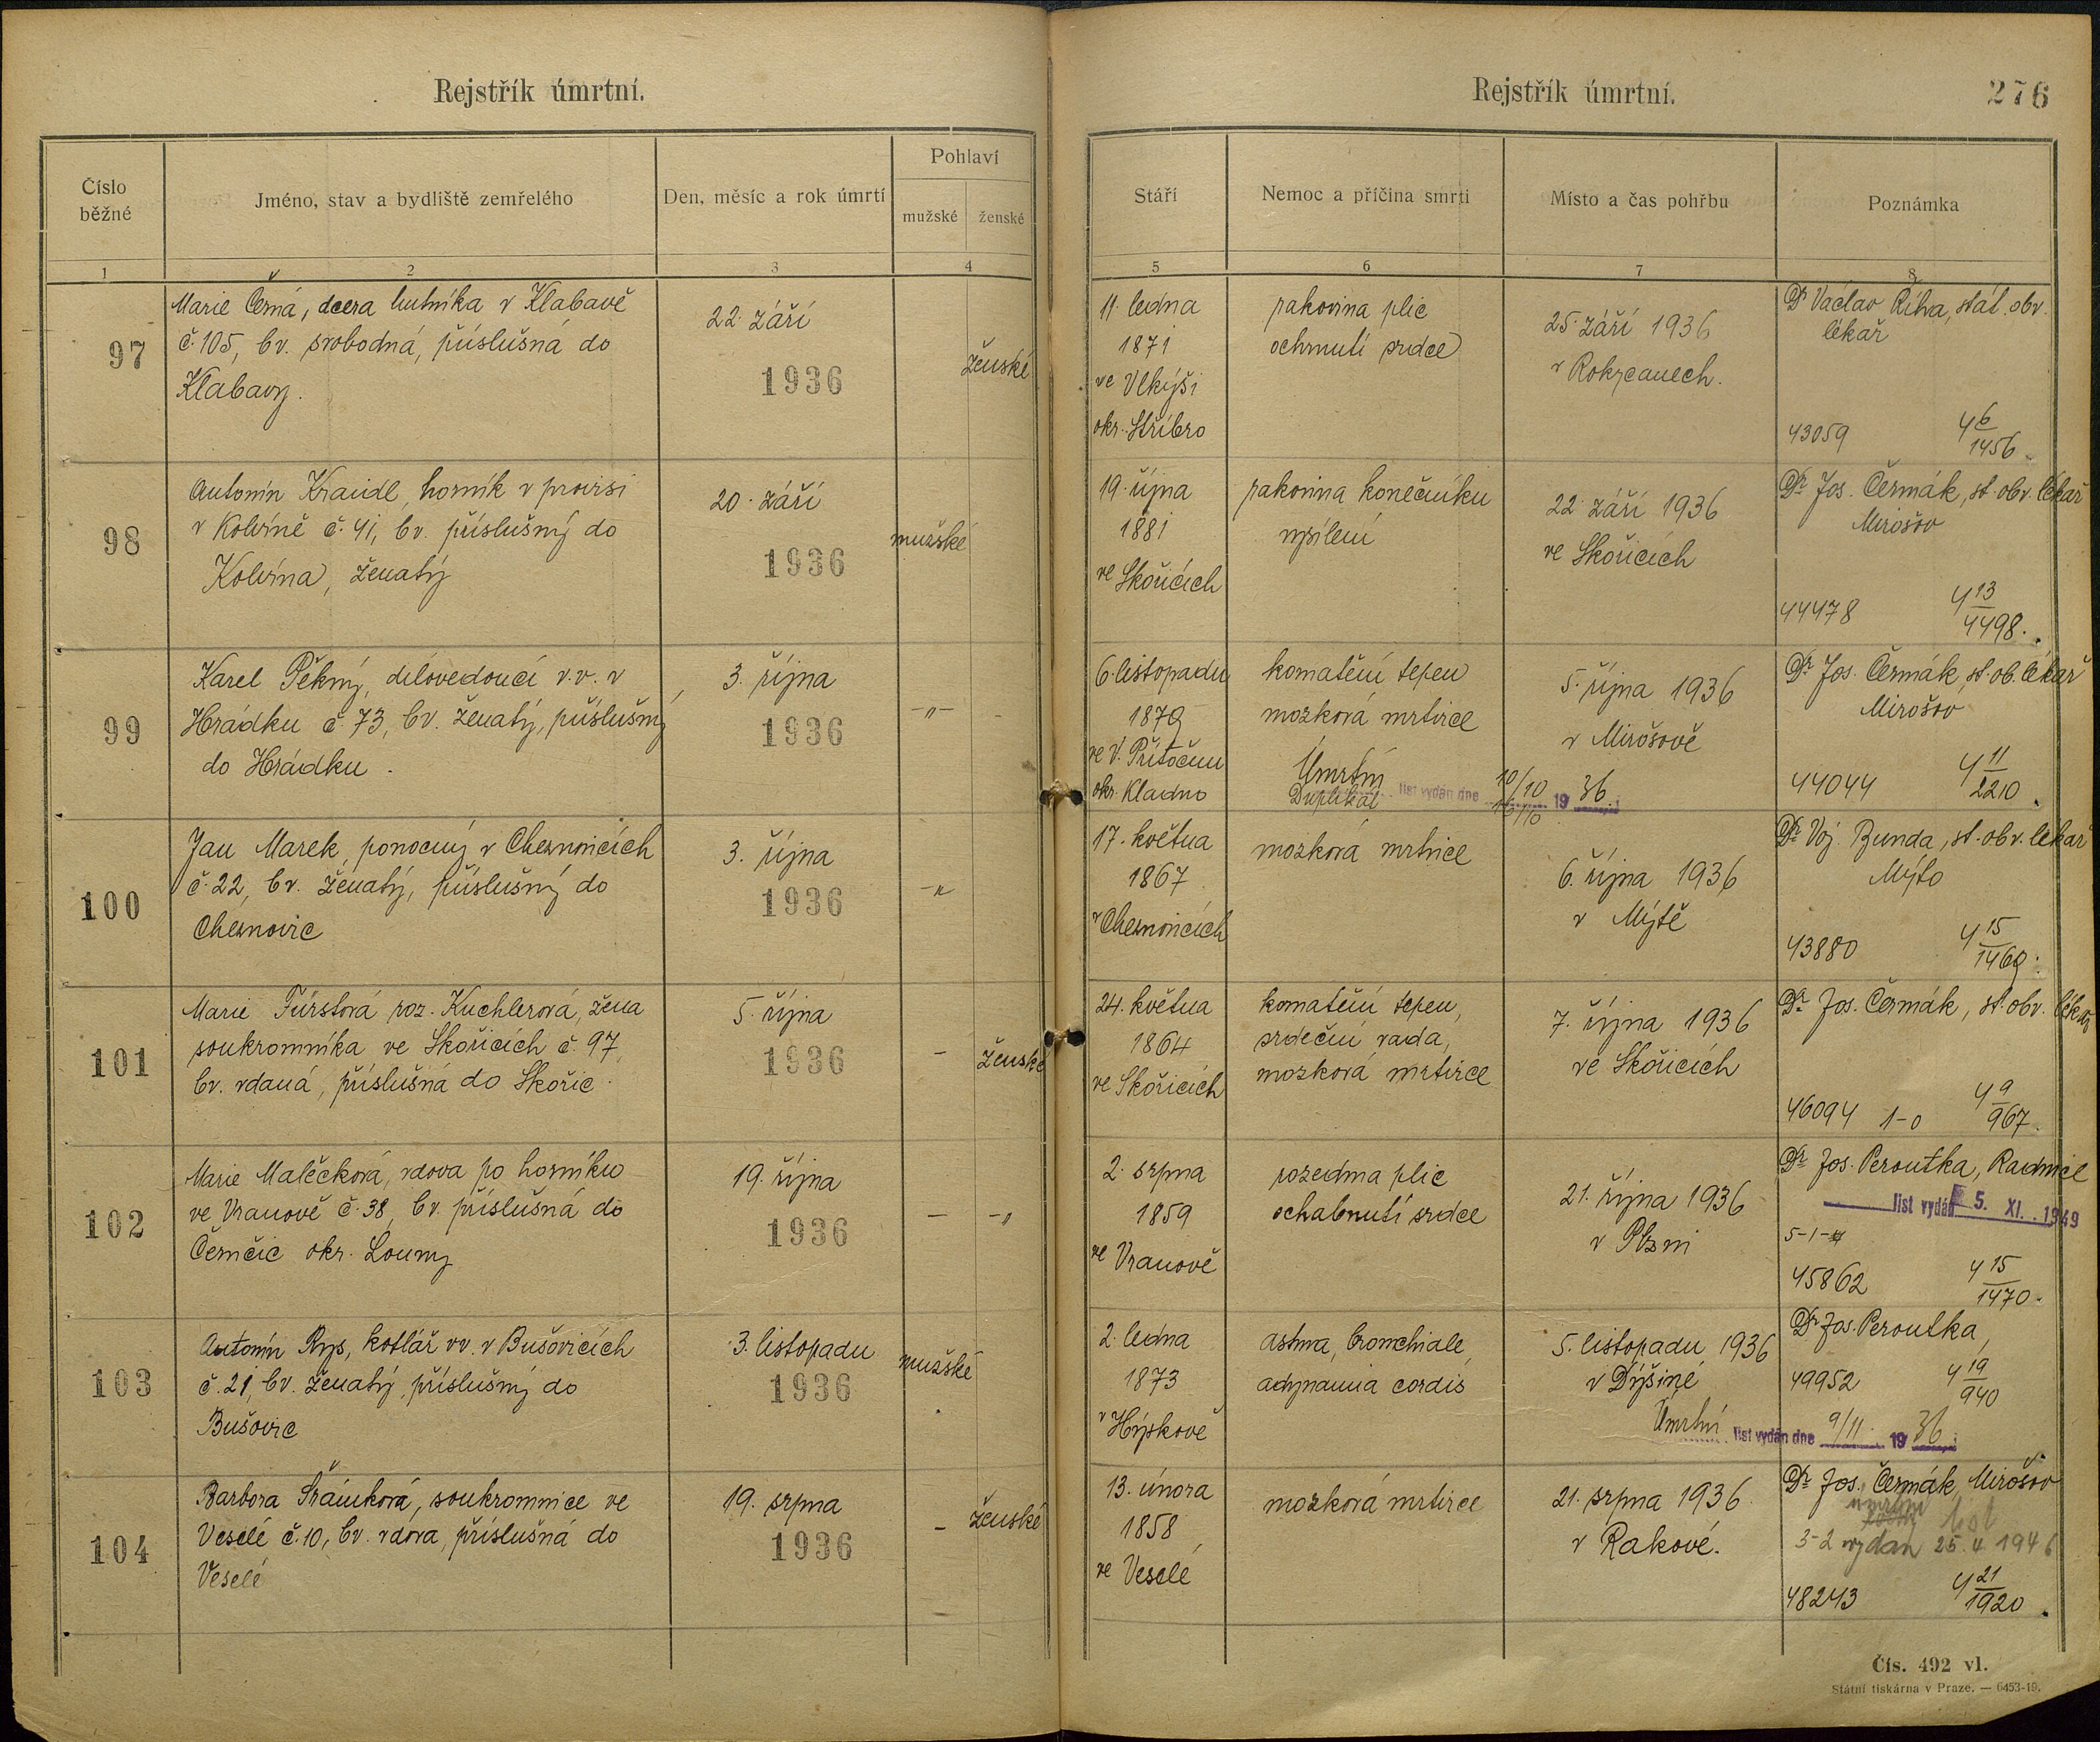 Rejstřík úmrtní.
Číslo běžné
Jméno, stav a bydliště zemřelého
Den, měsíc a rok úmrtí
Pohlaví
mužské
ženské
1
2
3
4
97
Marie Černá, dcera hutníka v Klabavě
č. 105, bv. svobodná, příslušná do
Klabavy.
22. září
1936
ženské
98
Antonín Kraidl, horník v provisi
v Kolvíně č. 41, bv. příslušný do
Kolvína, ženatý
20. září
1936
mužské
99
Karel Pěkný, dílovedoucí v.v. v
Hrádku č. 73, bv. ženatý, příslušný
do Hrádku.
3. října
1936
-"-
100
Jan Marek, ponocný v Cheznovicích
č. 22, bv. ženatý, příslušný do
Cheznovic
3. října
1936
-"
101
Marie Fürstová roz. Kuchlerová, žena
soukromníka ve Skořicích č. 97,
bv. vdaná, příslušná do Skořic.
5. října
1936
-
ženské
102
Marie Malečková, vdova po horníku
ve Vranově č. 38, bv. příslušná do
Černčic okr. Louny
19. října
1936
-
-"
103
Antonín Rys, kotlář vv. v Bušovicích
č. 21, bv. ženatý, příslušný do
Bušovic
3. listopadu
1936
mužské
104
Barbora Šrámková, soukromnice ve
Veselé č. 10, bv. vdova, příslušná do
Veselé
19. srpna
1936
-
ženské
Rejstřík úmrtní.
276
Stáří
Nemoc a příčina smrti
Místo a čas pohřbu
Poznámka
5
6
7
8
11. ledna
1871
ve Vlkýši
okr. Stříbro
rakovina plic
ochrnutí srdce
25. září 1936
v Rokycanech.
Dr Václav Říha, stát. obv.
lékař
43059
4 6/1456
19. října
1881
ve Skořicích
rakovina konečníku
vysílení
22. září 1936
ve Skořicích
Dr. Jos. Čermák, st. obv. lékař
Mirošov
44478
4 13/4498.
6. listopadu
1879
ve V. Přítočnu
okr. Kladno
kornatění tepen
mozková mrtvice
Úmrtní
Duplikát list vydán dne 10/10 16/10 1936.
5. října 1936
v Mirošově
Dr. Jos. Čermák, st. ob. lékař
Mirošov
44044
4 11/2210
17. května
1867
v Cheznovicích
mozková mrtvice
6. října 1936
v Mýtě
Dr. Voj. Bunda, st. obv. lékař
Mýto
43880
4 15/1469.
24. května
1864
ve Skořicích
kornatění tepen,
srdeční vada,
mozková mrtvice
7. října 1936
ve Skořicích
Dr. Jos. Čermák, st. obv. lékař
46094 1-0
4 9/967.
2. srpna
1859
ve Vranově
rozedma plic
ochabnutí srdce
21. října 1936
v Plzni
Dr. Jos. Peroutka, Radnice
list vydán 5. XI. 1949
45862
4 15/1470.
2. ledna
1873
v Hýskově
Astma bronchiale,
adynamia cordis
5. listopadu 1936
v Dýšině
Úmrtní list vydán dne 9/11 1936.
Dr Jos. Peroutka,
49952
4 19/940
13. února
1858
ve Veselé
mozková mrtvice
21. srpna 1936
v Rakové.
Dr. Jos. Čermák, Mirošov
úmrtní
list
3-2 vydán 25. 4. 1946
48243
4 21/1920.
Čís. 492 vl.
Státní tiskárna v Praze. — 6453-19.